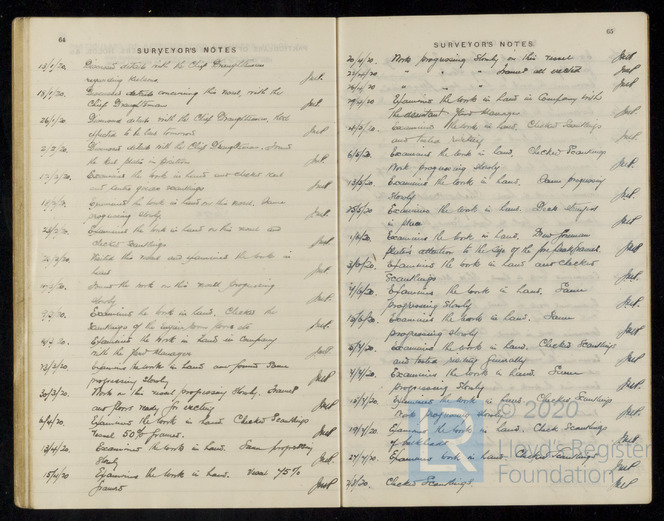 64
SURVEYOR'S NOTES
13/1/20. Discussed details with the Chief Draughtsman
regarding
Discussed details concerning this vessel with the
Chief Draughtsman
26/1/20 Discussed details with the Chief Draughtsman, Keel
expected to be laid tomorrow
2/2/20. Discussed details with the Chief Draughtsman. Found
the Keel plates in position
Examined the work in hand and checked keel
and centre girder scantlings
Examined the work in hand on this vessel. Same
progressing slowly
Examined the work in hand on this vessel and
checked scantlings
Visited this vessel and examined the work in
hand
Found the work on this vessel progressing
slowly
Examined the work in hand. Checked the
scantlings of the
Examined the work in hand in company
with the Yard Manager
Examined the work in hand and found same
progressing slowly
30/3/20. Work on this vessel progressing slowly. Frames
and floors ready for erecting
6/4/20. Examined the work in hand. Checked Scantlings
Vessel 50% framed.
13/4/20. Examined the work in hand. Same progressing
slowly
15/4/20 Examined the work in hand. Vessel 75%
framed
65
SURVEYOR'S NOTES.
20/4/20. Work progressing slowly on this vessel
" " " frames all erected
" " "
Examined the work in hand in Company with
the Assistant Yard Manager
Examined the work in hand. Checked Scantlings
and tested riveting
6/5/20. Examined the work in hand. Checked Scantlings
Work progressing slowly
13/5/20. Examined the work in hand. Same progressing
slowly
25/5/20 Examined the work in hand. Deck stringers
in place
1/6/20. Examined the work in hand. Drew foreman
platers attention to the
Examined the work in hand and checked
Scantlings
Examined the work in hand. Same
progressing slowly
Examined the work in hand. Same
progressing slowly
Examined the work in hand. Checked Scantlings
and tested riveting generally
Examined the work in hand. Same
progressing slowly
Examined the work in hand. Checked Scantlings
Work progressing slowly
19/7/20 Examined the work in hand. Check Scantlings
of bulkheads
Examined work in hand. Checked scantlings
Checked Scantlings.
LR
© 2020
Lloyd's Register
Foundation